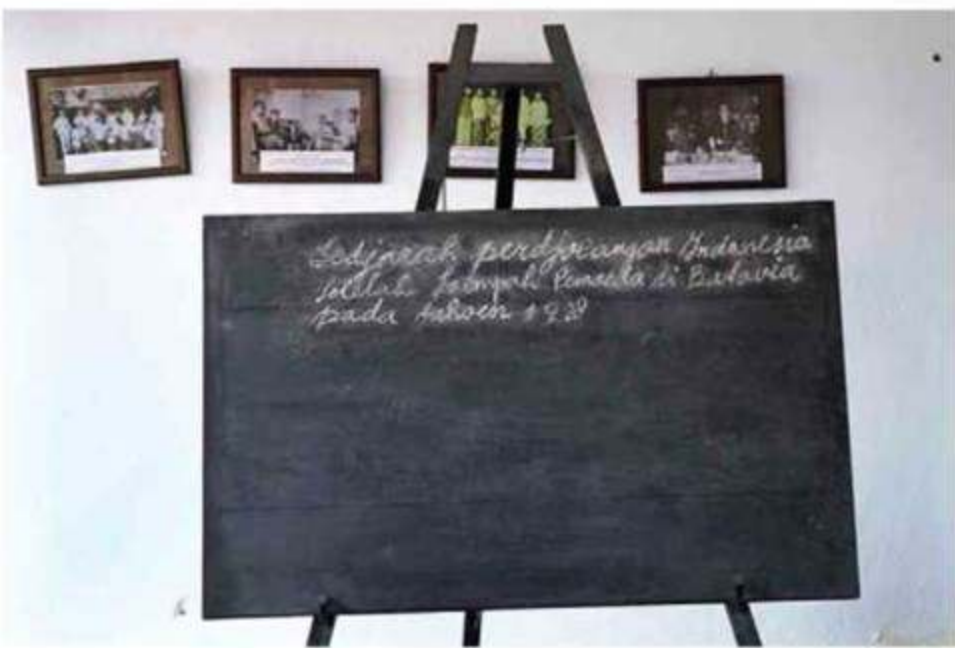 Sedjarah perdjoeangan Indonesia
setelah Soempah Pemoeda di Batavia
pada tahoen 1928